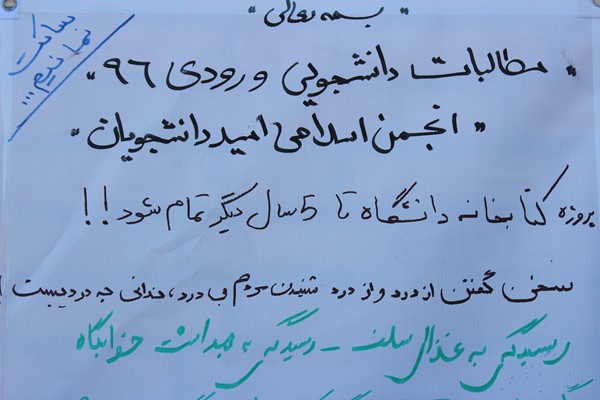 "بسمه تعالی"
ساکت
نمانیم...
"مطالبات دانشجویی ورودی ۹۶"
"انجمن اسلامی امید دانشجویان"
پروژه کتابخانه دانشگاه تا 5 سال دیگر تمام شود!!
سخن گفتن از درد و از درد شنیدن مردم بی درد، ندانی چه دردیست
رسیدگی به غذای سلف - رسیدگی به بهداشت خوابگاه